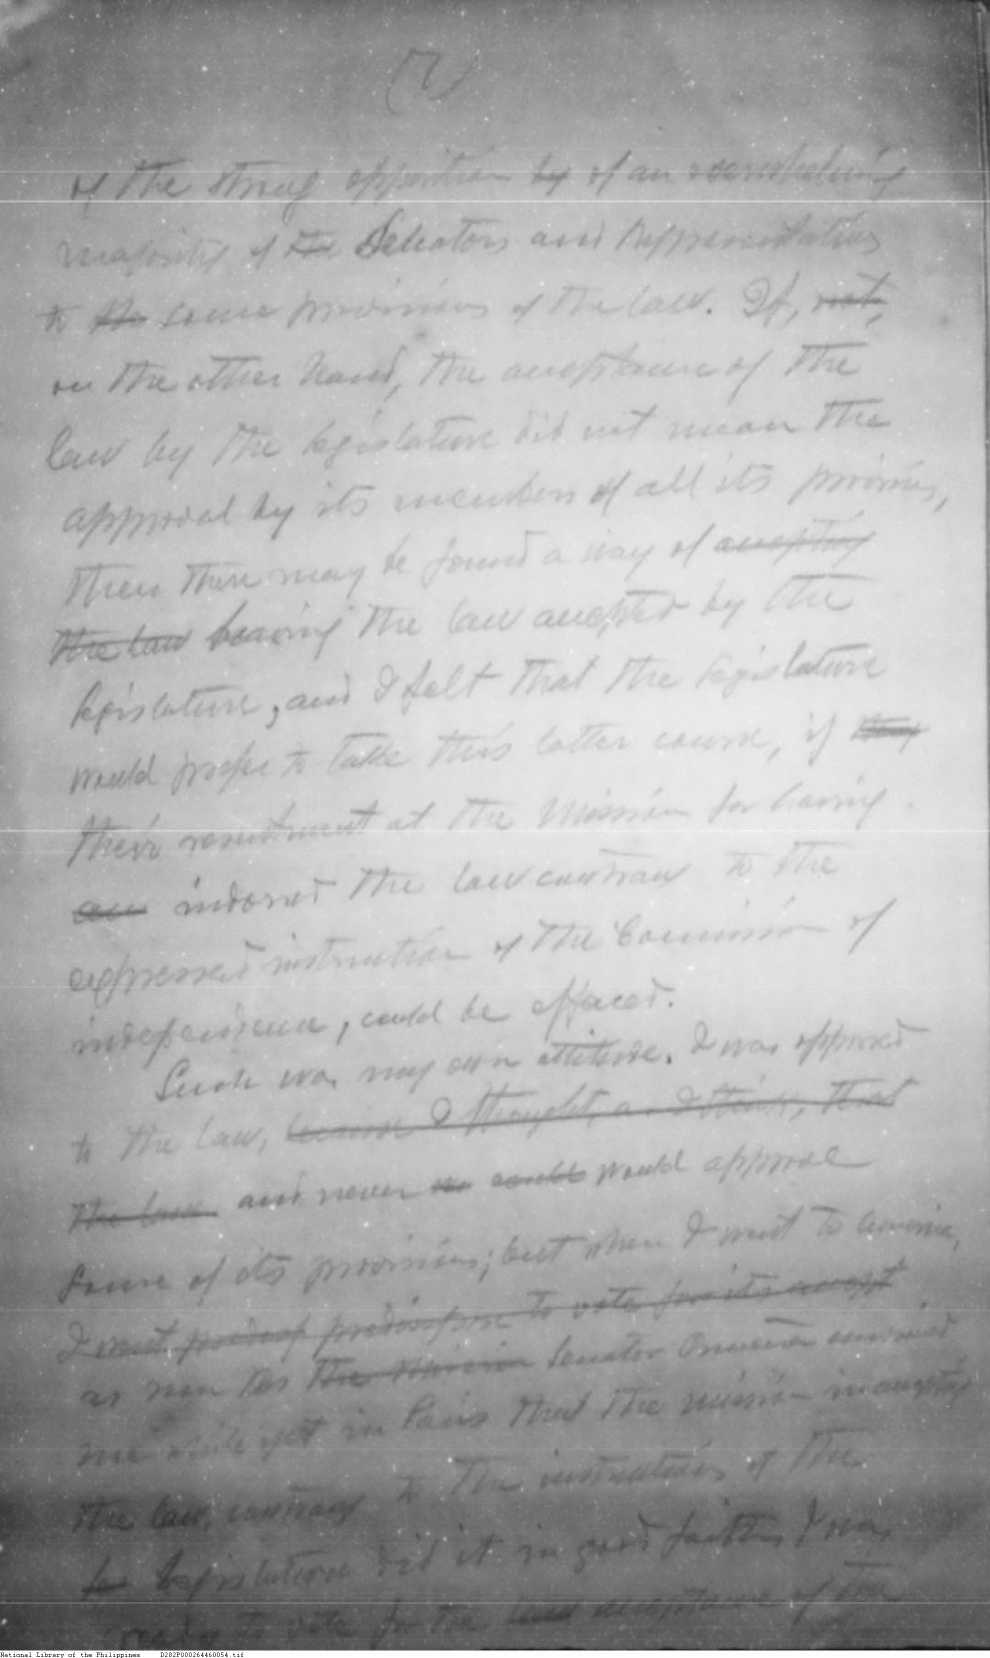 (7)
of the strong opposition by of an overwhelming
majority of the Senators and Representatives
to the some provisions of the law. If, not,
on the other hand, the acceptance of the
law by the legislature did not mean the
approval by its members of all its provisions,
then there may be found a way of accepting
the law having the law accepted by the
legislature, and I felt that the legislature
would prefer to take this latter course, if they
their resentment at the Mission for having
an indorsed the law contrary to the
expressed instruction of the Commission of
independence, could be effaced.
Such was my own attitude. I was opposed
to the law, because I thought, that
the law and never could would approve
some of its provisions; but when I went to America,
I went predispose to vote for its accept
as soon as the Mission Senator Osmeña convinced
me while yet in Paris that the mission in accepting
the law, contrary to the instructions of the
Legislature did it in good faith, I was
ready to vote for the acceptance of the